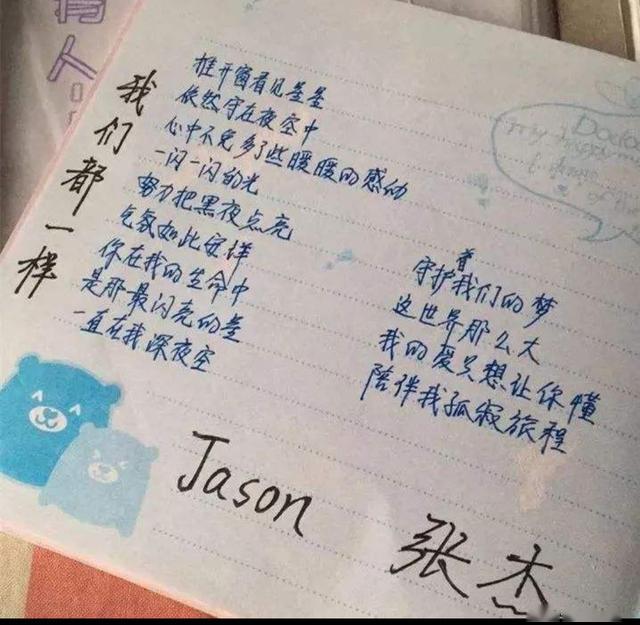 我们都一样
推开窗看见星星
依然守在夜空中
心中不免多了些暖暖的感动
一闪一闪的光
努力把黑夜点亮
气氛如此安详
你在我的生命中
是那最闪亮的星
一直在我深夜空
守护着我们的梦
这世界那么大
我的爱只想让你懂
陪伴我孤寂旅程
Jason 张杰